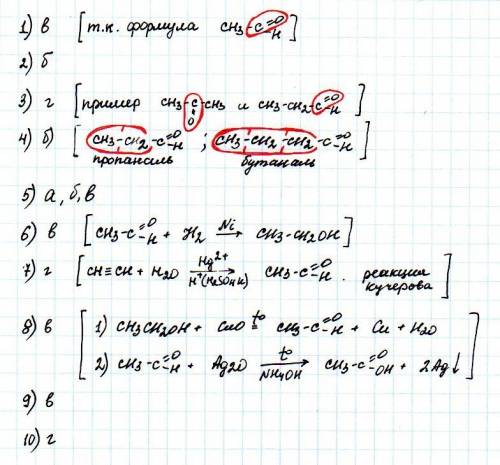 1) в [т.к. формула CH3-C=O-H]
2) б
3) г [пример CH3-C-CH3 и CH3-CH2-C=O-H
O
4) б) [CH3-CH2-C=O-H ; CH3-CH2-CH2-C=O-H]
пропаналь бутаналь
5) а, б, в
6) в [CH3-C=O-H + H2 Ni→ CH3-CH2OH]
7) г [CH≡CH + H2O Hg2+→ CH3-C=O-H . реакция
H+(H2SO4 к) Кучерова]
8) в [1) CH3CH2OH + CuO t°= CH3-C=O-H + Cu + H2O
2) CH3-C=O-H + Ag2O t°→ CH3-C=O-OH + 2Ag↓
NH4OH
9) в
10) г